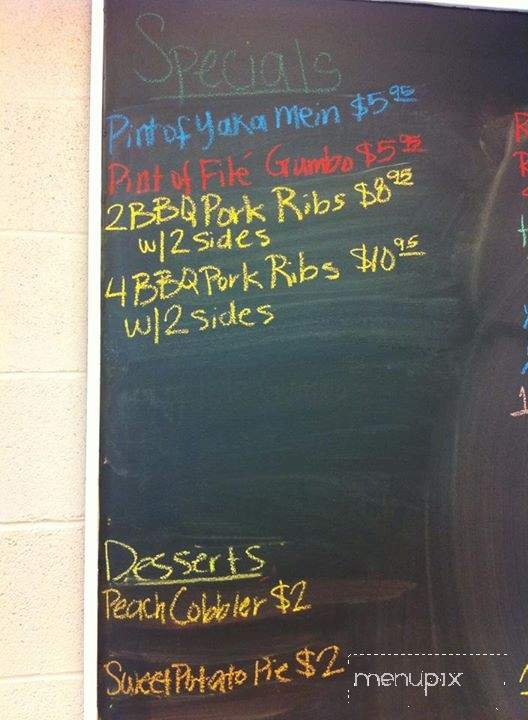 Specials
Pint of Yaka Mein $5.95
Pint of Filé Gumbo $5.95
2 BBQ Pork Ribs $8.95
w/2 sides
4 BBQ Pork Ribs $10.95
w/2 sides
Desserts
Peach Cobbler $2
Sweet Potato Pie $2
menupix